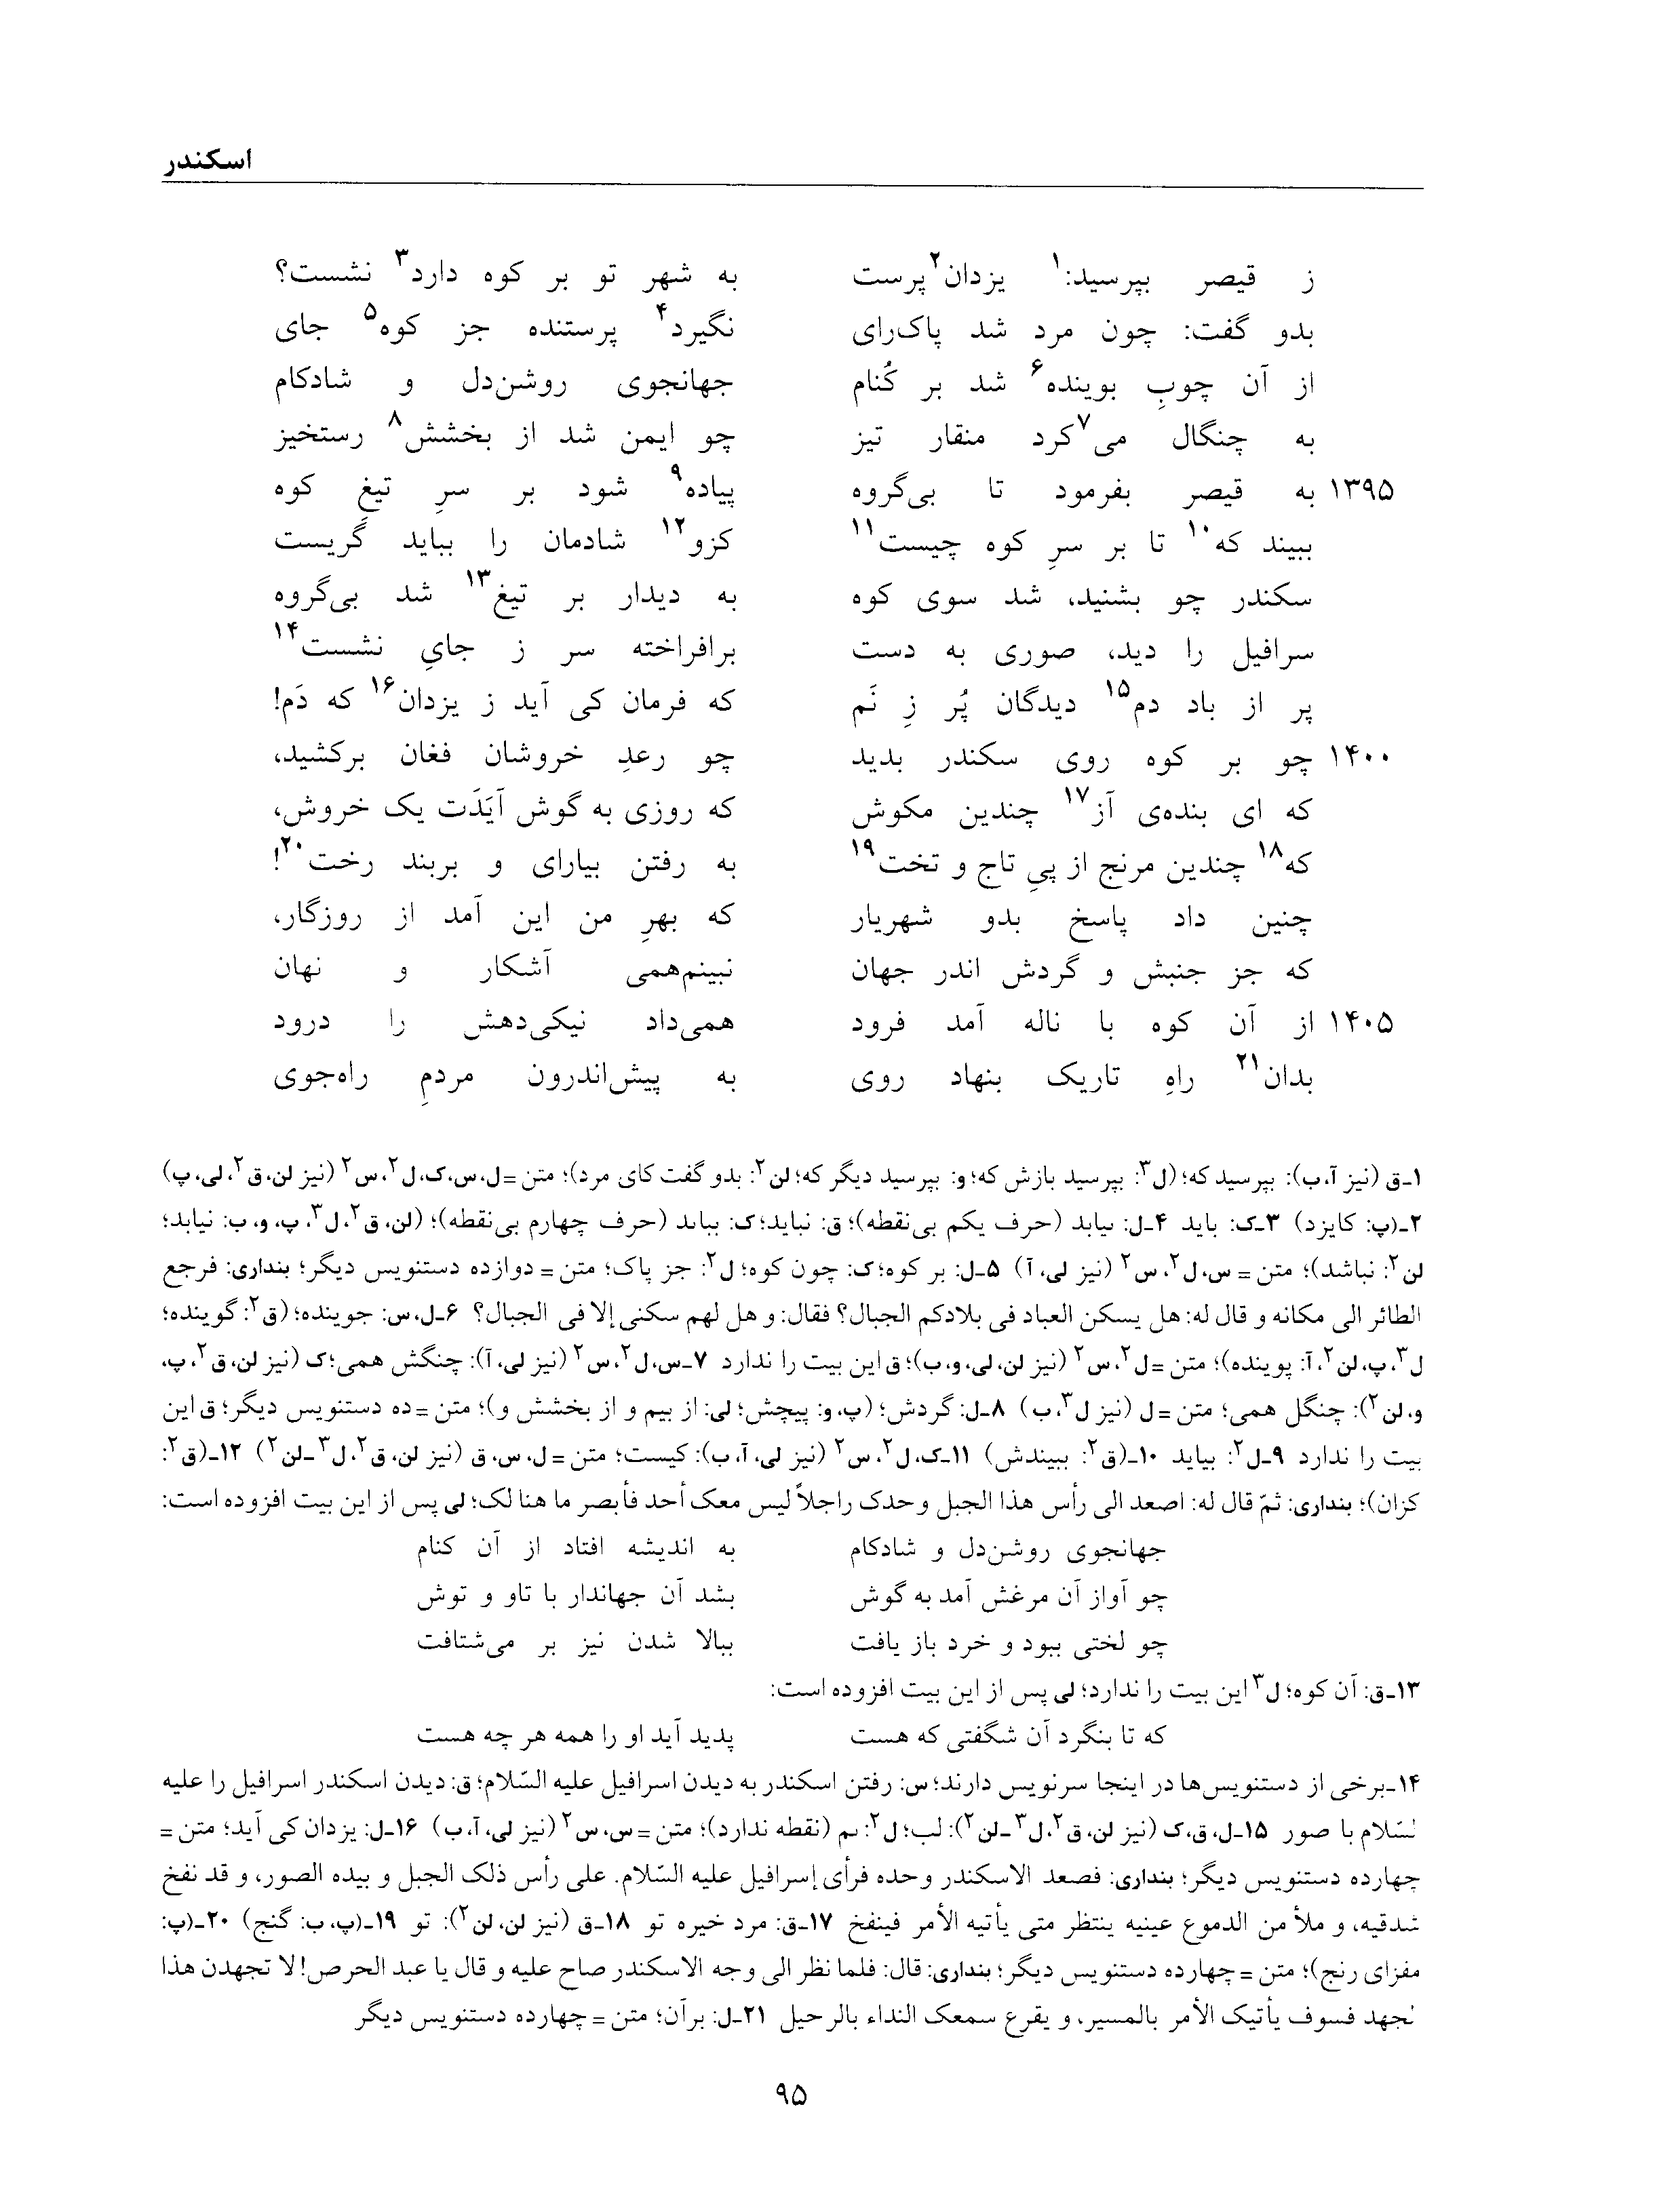 اسکندر
ز قیصر بپرسید:۱ یزدان۲پرست به شهر تو بر کوه دارد۳ نشست؟
بدو گفت: چون مرد شد پاک‌رای نگیرد۴ پرستنده جز کوه۵ جای
از آن چوبِ بوینده۶ شد بر کُنام جهانجوی روشن‌دل و شادکام
به چنگال می۷کرد منقار تیز چو ایمن شد از بخشش۸ رستخیز
۱۳۹۵ به قیصر بفرمود تا بی‌گروه پیاده۹ شود بر سرِ تیغِ کوه
ببیند که۱۰ تا بر سرِ کوه چیست۱۱ کزو۱۲ شادمان را بباید گَریست
سکندر چو بشنید، شد سوی کوه به دیدار بر تیغ۱۳ شد بی‌گروه
سرافیل را دید، صوری به دست برافراخته سر ز جایِ نشست۱۴
پر از باد دم۱۵ دیدگان پُر زِ نَم که فرمان کی آید ز یزدان۱۶ که دَم!
۱۴۰۰ چو بر کوه روی سکندر بدید چو رعدِ خروشان فغان برکشید،
که ای بنده‌ی آز۱۷ چندین مکوش که روزی به گوش آیَدَت یک خروش،
که۱۸ چندین مرنج از پیِ تاج و تخت۱۹ به رفتن بیارای و بربند رخت۲۰!
چنین داد پاسخ بدو شهریار که بهرِ من این آمد از روزگار،
که جز جنبش و گردش اندر جهان نبینم‌همی آشکار و نهان
۱۴۰۵ از آن کوه با ناله آمد فرود همی‌داد نیکی‌دهش را درود
بدان۲۱ راهِ تاریک بنهاد روی به پیش‌اندرون مردمِ راه‌جوی
۱ـ‌ق (نیز آ، ب): بپرسید که؛ (ل۳: بپرسید بازش که؛ و: بپرسید دیگر که؛ لن۲: بدو گفت کای مرد)؛ متن = ل، س، ک، ل۲، س۲ (نیز لن، ق۲، لی، پ)
۲ـ(پ: کایزد) ۳ـ‌ک: باید ۴ـ‌ل: ىیابد (حرف یکم بی‌نقطه)؛ ق: نباید؛ ک: بىابد (حرف چهارم بی‌نقطه)؛ (لن، ق۲، ل۳، پ، و، ب: نیابد؛
لن۲: نباشد)؛ متن = س، ل۲، س۲ (نیز لی، آ) ۵ـ‌ل: بر کوه؛ ک: چون کوه؛ ل۲: جز پاک؛ متن = دوازده دستنویس دیگر؛ بنداری: فرجع
الطائر الی مکانه و قال له: هل یسکن العباد فی بلادکم الجبال؟ فقال: و هل لهم سکنی إلا فی الجبال؟ ۶ـ‌ل، س: جوینده؛ (ق۲: گوینده؛
ل۳، پ، لن۲، آ: پوینده)؛ متن = ل۲، س۲ (نیز لن، لی، و، ب)؛ ق این بیت را ندارد ۷ـ‌س، ل۲، س۲ (نیز لی، آ): چنگش همی؛ ک (نیز لن، ق۲، پ،
و، لن۲): چنگل همی؛ متن = ل (نیز ل۳، ب) ۸ـ‌ل: گردش؛ (پ، و: پیچش؛ لی: از بیم و از بخشش و)؛ متن = ده دستنویس دیگر؛ ق این
بیت را ندارد ۹ـ‌ل۲: بیاید ۱۰ـ(ق۲: ببیندش) ۱۱ـ‌ک، ل۲، س۲ (نیز لی، آ، ب): کیست؛ متن = ل، س، ق (نیز لن، ق۲، ل۳ـ‌لن۲) ۱۲ـ(ق۲:
کزان)؛ بنداری: ثمّ قال له: اصعد الی رأس هذا الجبل وحدک راجلاً لیس معک أحد فأبصر ما هنا لک؛ لی پس از این بیت افزوده است:
جهانجوی روشن‌دل و شادکام به اندیشه افتاد از آن کنام
چو آواز آن مرغش آمد به گوش بشد آن جهاندار با تاو و توش
چو لختی ببود و خرد باز یافت ببالا شدن نیز بر می‌شتافت
۱۳ـ‌ق: آن کوه؛ ل۳ این بیت را ندارد؛ لی پس از این بیت افزوده است:
که تا بنگرد آن شگفتی که هست پدید آید او را همه هر چه هست
۱۴ـ‌برخی از دستنویس‌ها در اینجا سرنویس دارند؛ س: رفتن اسکندر به دیدن اسرافیل علیه السّلام؛ ق: دیدن اسکندر اسرافیل را علیه
لسّلام با صور ۱۵ـ‌ل، ق، ک (نیز لن، ق۲، ل۳ـ‌لن۲): لب؛ ل۲: ىم (نقطه ندارد)؛ متن = س، س۲ (نیز لی، آ، ب) ۱۶ـ‌ل: یزدان کی آید؛ متن =
چهارده دستنویس دیگر؛ بنداری: فصعد الاسکندر وحده فرأی إسرافیل علیه السّلام. علی رأس ذلک الجبل و بیده الصور، و قد نفخ
شدقیه، و ملأ من الدموع عینیه ینتظر متی یأتیه الأمر فینفخ ۱۷ـ‌ق: مرد خیره تو ۱۸ـ‌ق (نیز لن، لن۲): تو ۱۹ـ(پ، ب: گنج) ۲۰ـ(پ:
مفزای رنج)؛ متن = چهارده دستنویس دیگر؛ بنداری: قال: فلما نظر الی وجه الاسکندر صاح علیه و قال یا عبد الحرص! لا تجهدن هذا
لجهد فسوف یأتیک الأمر بالمسیر، و یقرع سمعک النداء بالرحیل ۲۱ـ‌ل: برآن؛ متن = چهارده دستنویس دیگر
۹۵